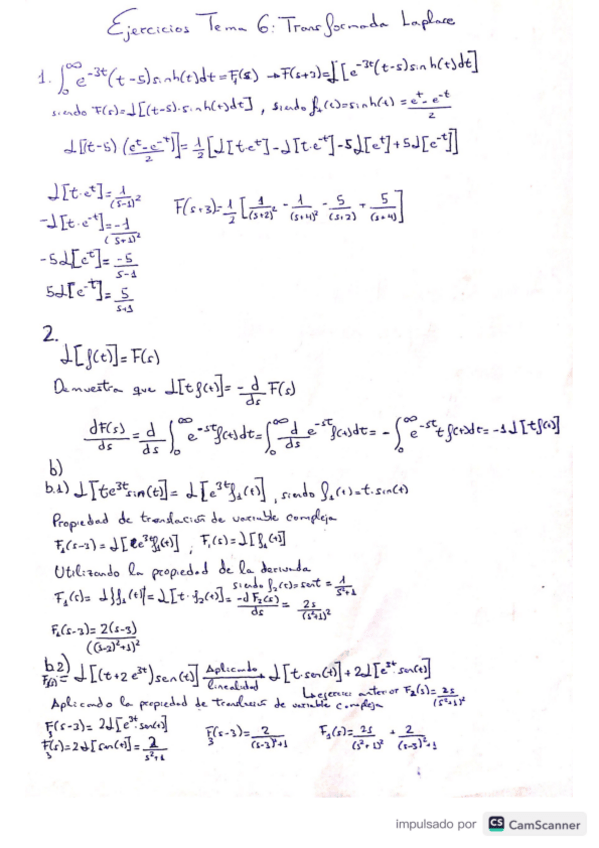 Ejercicios Tema 6: Transformada Laplace
1. ∫₀^∞ e^-3t (t-5) sinh(t) dt = F(s) → F(s+3) = ℒ[e^-3t (t-5) sinh(t) dt]
siendo F(s) = ℒ[(t-5). sinh(t) dt], siendo f₁(t) = sinh(t) = (e^t - e^-t)/2
ℒ[(t-5) (e^t - e^-t)/2] = 1/2 [ℒ[t·e^t] - ℒ[t·e^-t] - 5ℒ[e^t] + 5ℒ[e^-t]]
ℒ[t·e^t] = 1/(s-1)²
F(s+3) = 1/2 [1/(s+2)² - 1/(s+4)² - 5/(s+2) + 5/(s+4)]
-ℒ[t·e^-t] = -1/(s+1)²
-5ℒ[e^t] = -5/(s-1)
5ℒ[e^-t] = 5/(s+1)
2.
ℒ[f(t)] = F(s)
Demuestra que ℒ[t f(t)] = -d/ds F(s)
dF(s)/ds = d/ds ∫₀^∞ e^-st f(t) dt = ∫₀^∞ d/ds e^-st f(t) dt = -∫₀^∞ e^-st t f(t) dt = -1 ℒ[t f(t)]
b)
b.1) ℒ[t e^3t sin(t)] = ℒ[e^3t f₁(t)], siendo f₁(t) = t·sin(t)
Propiedad de translación de variable compleja
F₁(s-3) = ℒ[e^3t f₁(t)], F₁(s) = ℒ[f₁(t)]
Utilizando la propiedad de la derivada
siendo f₂(t) = sent = 1/(s²+1)
F₁(s) = ℒ{f₁(t)} = ℒ[t·f₂(t)] = -dF₂(s)/ds = 2s/(s²+1)²
F₁(s-3) = 2(s-3)/((s-3)²+1)²
b2) F(s) = ℒ[(t+2e^3t) sen(t)] Aplicando linealidad ℒ[t·sen(t)] + 2ℒ[e^3t·sen(t)]
↳ ejercicio anterior F₂(s) = 2s/(s²+1)²
Aplicando la propiedad de de variable compleja
F₃(s-3) = 2ℒ[e^3t·sen(t)] F₃(s-3) = 2/((s-3)²+1) F₃(s) = 2s/(s²+1)² + 2/((s-3)²+1)
F₃(s) = 2ℒ[sen(t)] = 2/(s²+1)
impulsado por CS CamScanner